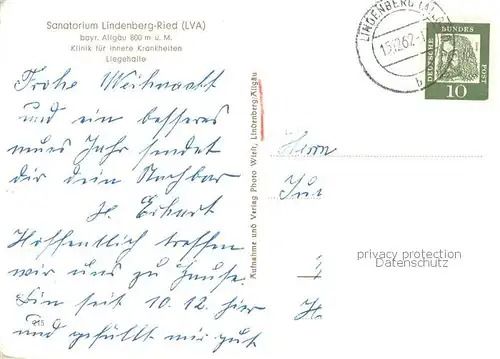 Sanatorium Lindenberg-Ried (LVA)
bayr. Allgäu 800 m ü. M.
Klinik für innere Krankheiten
Liegehalle
Frohe Weihnacht
und ein besseres
neues Jahr sendet
dir dein Nachbar
H. Eckart
Hoffentlich treffen
wir uns zu Hause.
Bin seit 10.12. hier
und gefällt mir gut
215
Aufnahme und Verlag Photo Wiett, Lindenberg/Allgäu
LINDENBERG (ALLG
15.12.62-1
b
DEUTSCHE BUNDES POST
10
Herrn
privacy protection
Datenschutz